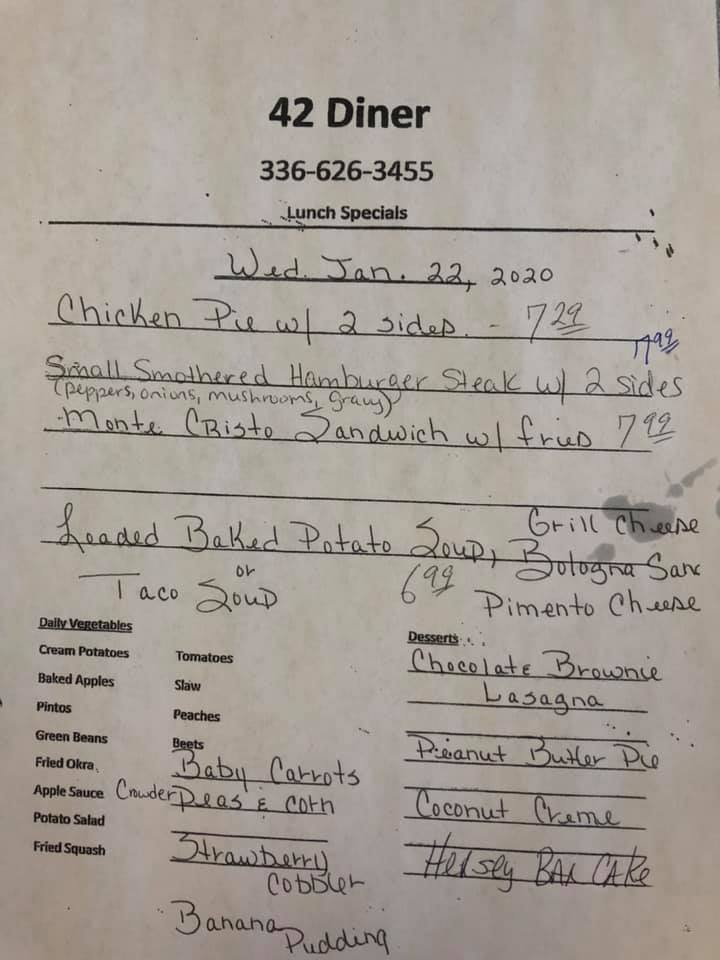 42 Diner
336-626-3455
Lunch Specials
Wed. Jan. 22, 2020
Chicken Pie w/ 2 sides. - 7.29
7.99
Small Smothered Hamburger Steak w/ 2 sides
(peppers, onions, mushrooms, gravy)
Monte Cristo Sandwich w/ fries 7.99
Grill Cheese
Loaded Baked Potato Soup, Bologna San
or
Taco Soup 6.99 Pimento Cheese
Daily Vegetables
Cream Potatoes
Baked Apples
Pintos
Green Beans
Fried Okra
Apple Sauce
Potato Salad
Fried Squash
Tomatoes
Slaw
Peaches
Beets
Baby Carrots
Crowder Peas & Corn
Strawberry
Cobbler
Banana
Pudding
Desserts
Chocolate Brownie
Lasagna
Peanut Butter Pie
Coconut Creme
Hersey Bar Cake